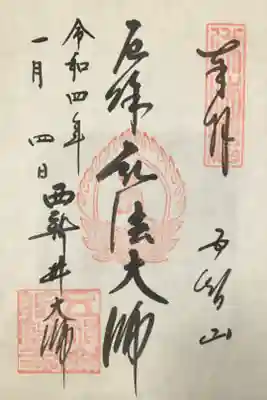 奉拝
五智山
厄除弘法大師
西新井大師
令和四年
一月 四日